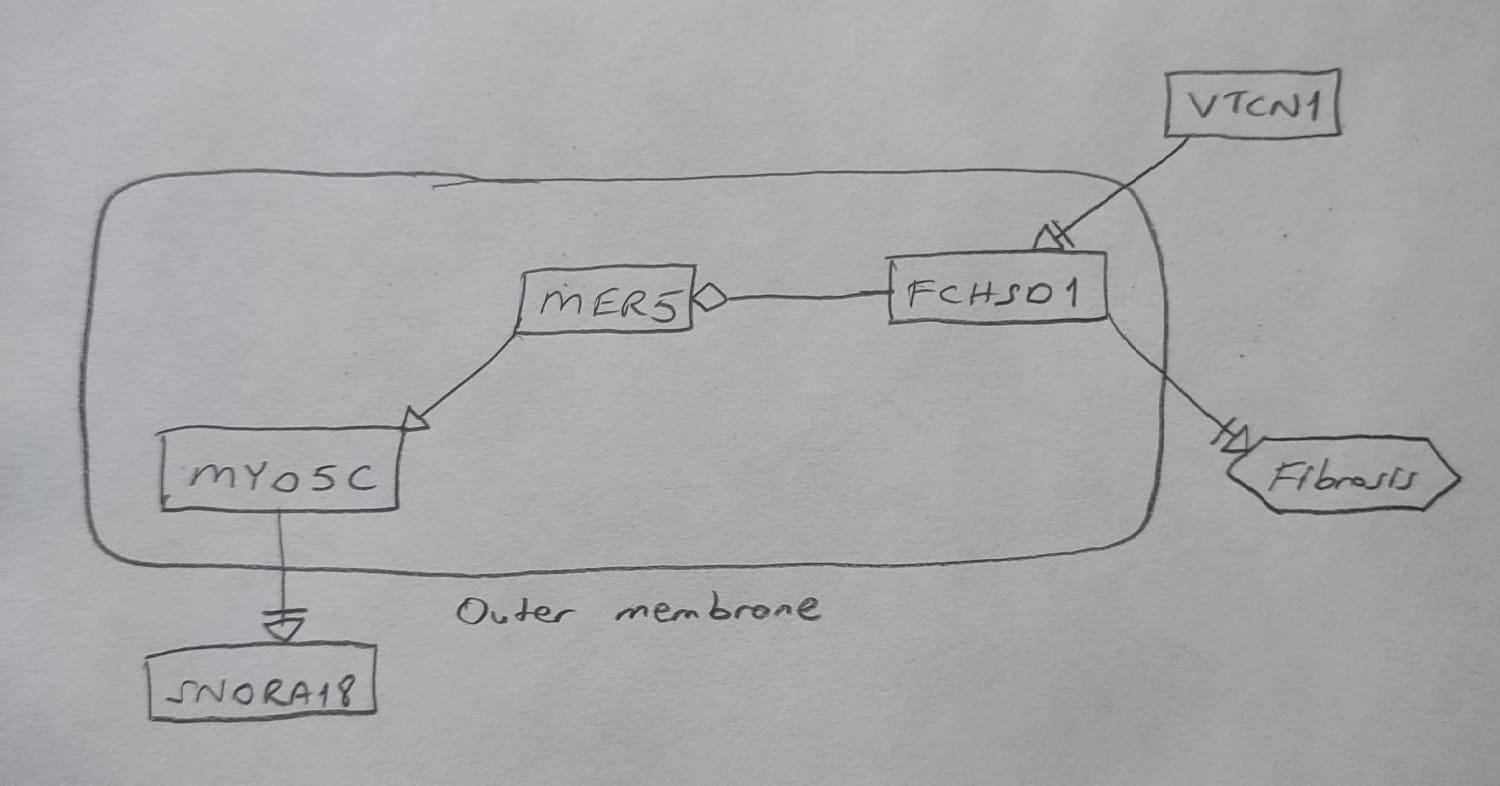 VTCN1
MER5
FCHSD1
MYO5C
Fibrosis
Outer membrane
SNORA18